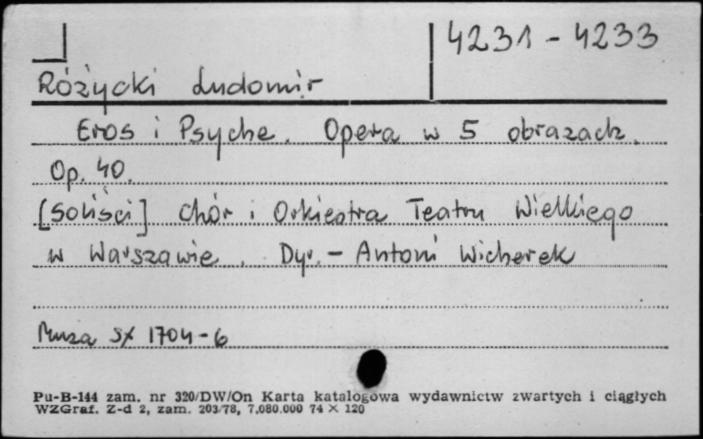 4231 - 4233
Różycki Ludomir
Eros i Psyche. Opera w 5 obrazach.
Op. 40.
[Soliści] Chór i Orkiestra Teatru Wielkiego
w Warszawie. Dyr. - Antoni Wicherek
Muza SX 1704-6
Pu-B-144 zam. nr 320/DW/On Karta katalogowa wydawnictw zwartych i ciągłych
WZGraf. Z-d 2, zam. 203/78, 7.080.000 74 × 120